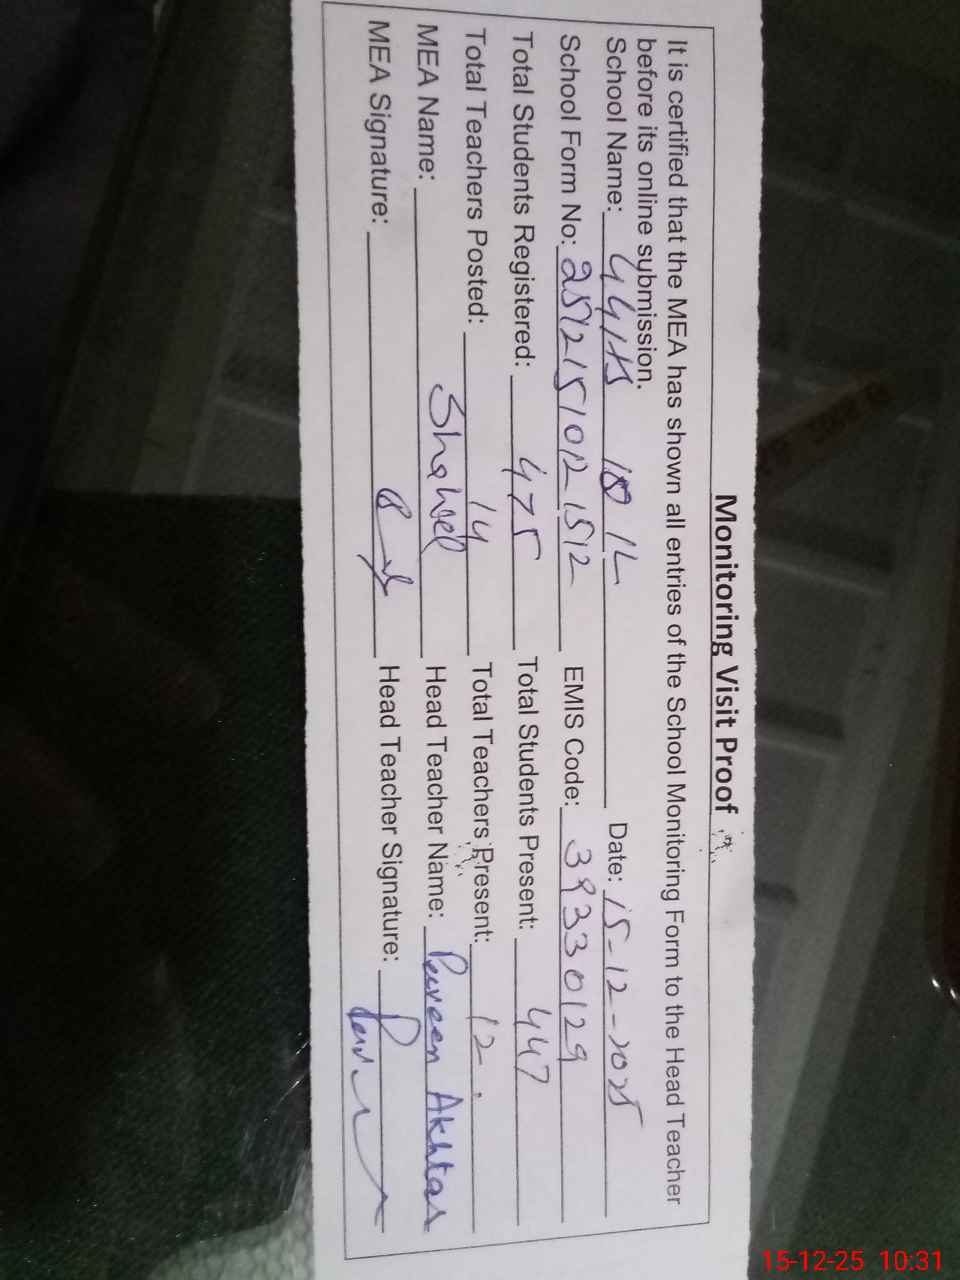 Monitoring Visit Proof
It is certified that the MEA has shown all entries of the School Monitoring Form to the Head Teacher
before its online submission.
School Name: 18 1L Date: 15-12-2025
School Form No: 2512151012 1512 EMIS Code: 39330129
Total Students Registered: 475 Total Students Present: 447
Total Teachers Posted: 14 Total Teachers Present: 12
MEA Name: Head Teacher Name: Perveen Akhtar
MEA Signature: Head Teacher Signature:
15-12-25 10:31